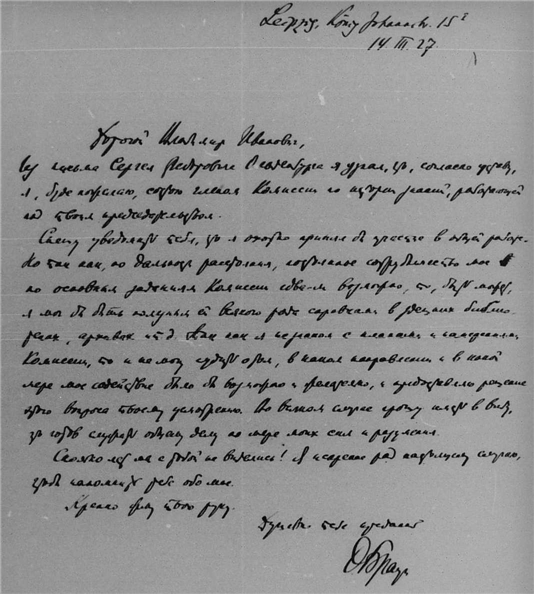 Leipzig, König Johannstr. 15 I
14 III. 27.
Дорогой Владимир Иванович,
Из письма Сергея Федоровича Ольденбурга я узнал, что, согласно уставу,
я, буде пожелаю, состою членом Комиссии по истории знаний, работающей
под твоим председательством.
Спешу уведомить тебя, что я охотно принял бы участие в общей работе.
Но так как, по дальности расстояния, подлинное сотрудничество мое
по основным заданиям Комиссии едва ли возможно, то, быть может,
я мог бы быть полезным от всякого рода справками в здешних библио-
теках, архивах и т.д. Так как я не знаком с планами и
Комиссии, то и не могу судить о том, в каком направлении и в какой
мере мое содействие было бы возможно и желательно, и предоставляю решение
этого вопроса твоему усмотрению. Во всяком случае прошу иметь в виду,
что готов служить общему делу по мере моих сил и разумения.
Сколько лет мы с тобой не видались! Я искренно рад настоящему случаю,
чтобы напомнить тебе обо мне.
Крепко жму твою руку.
Душевно тебе преданный
Ф Браун